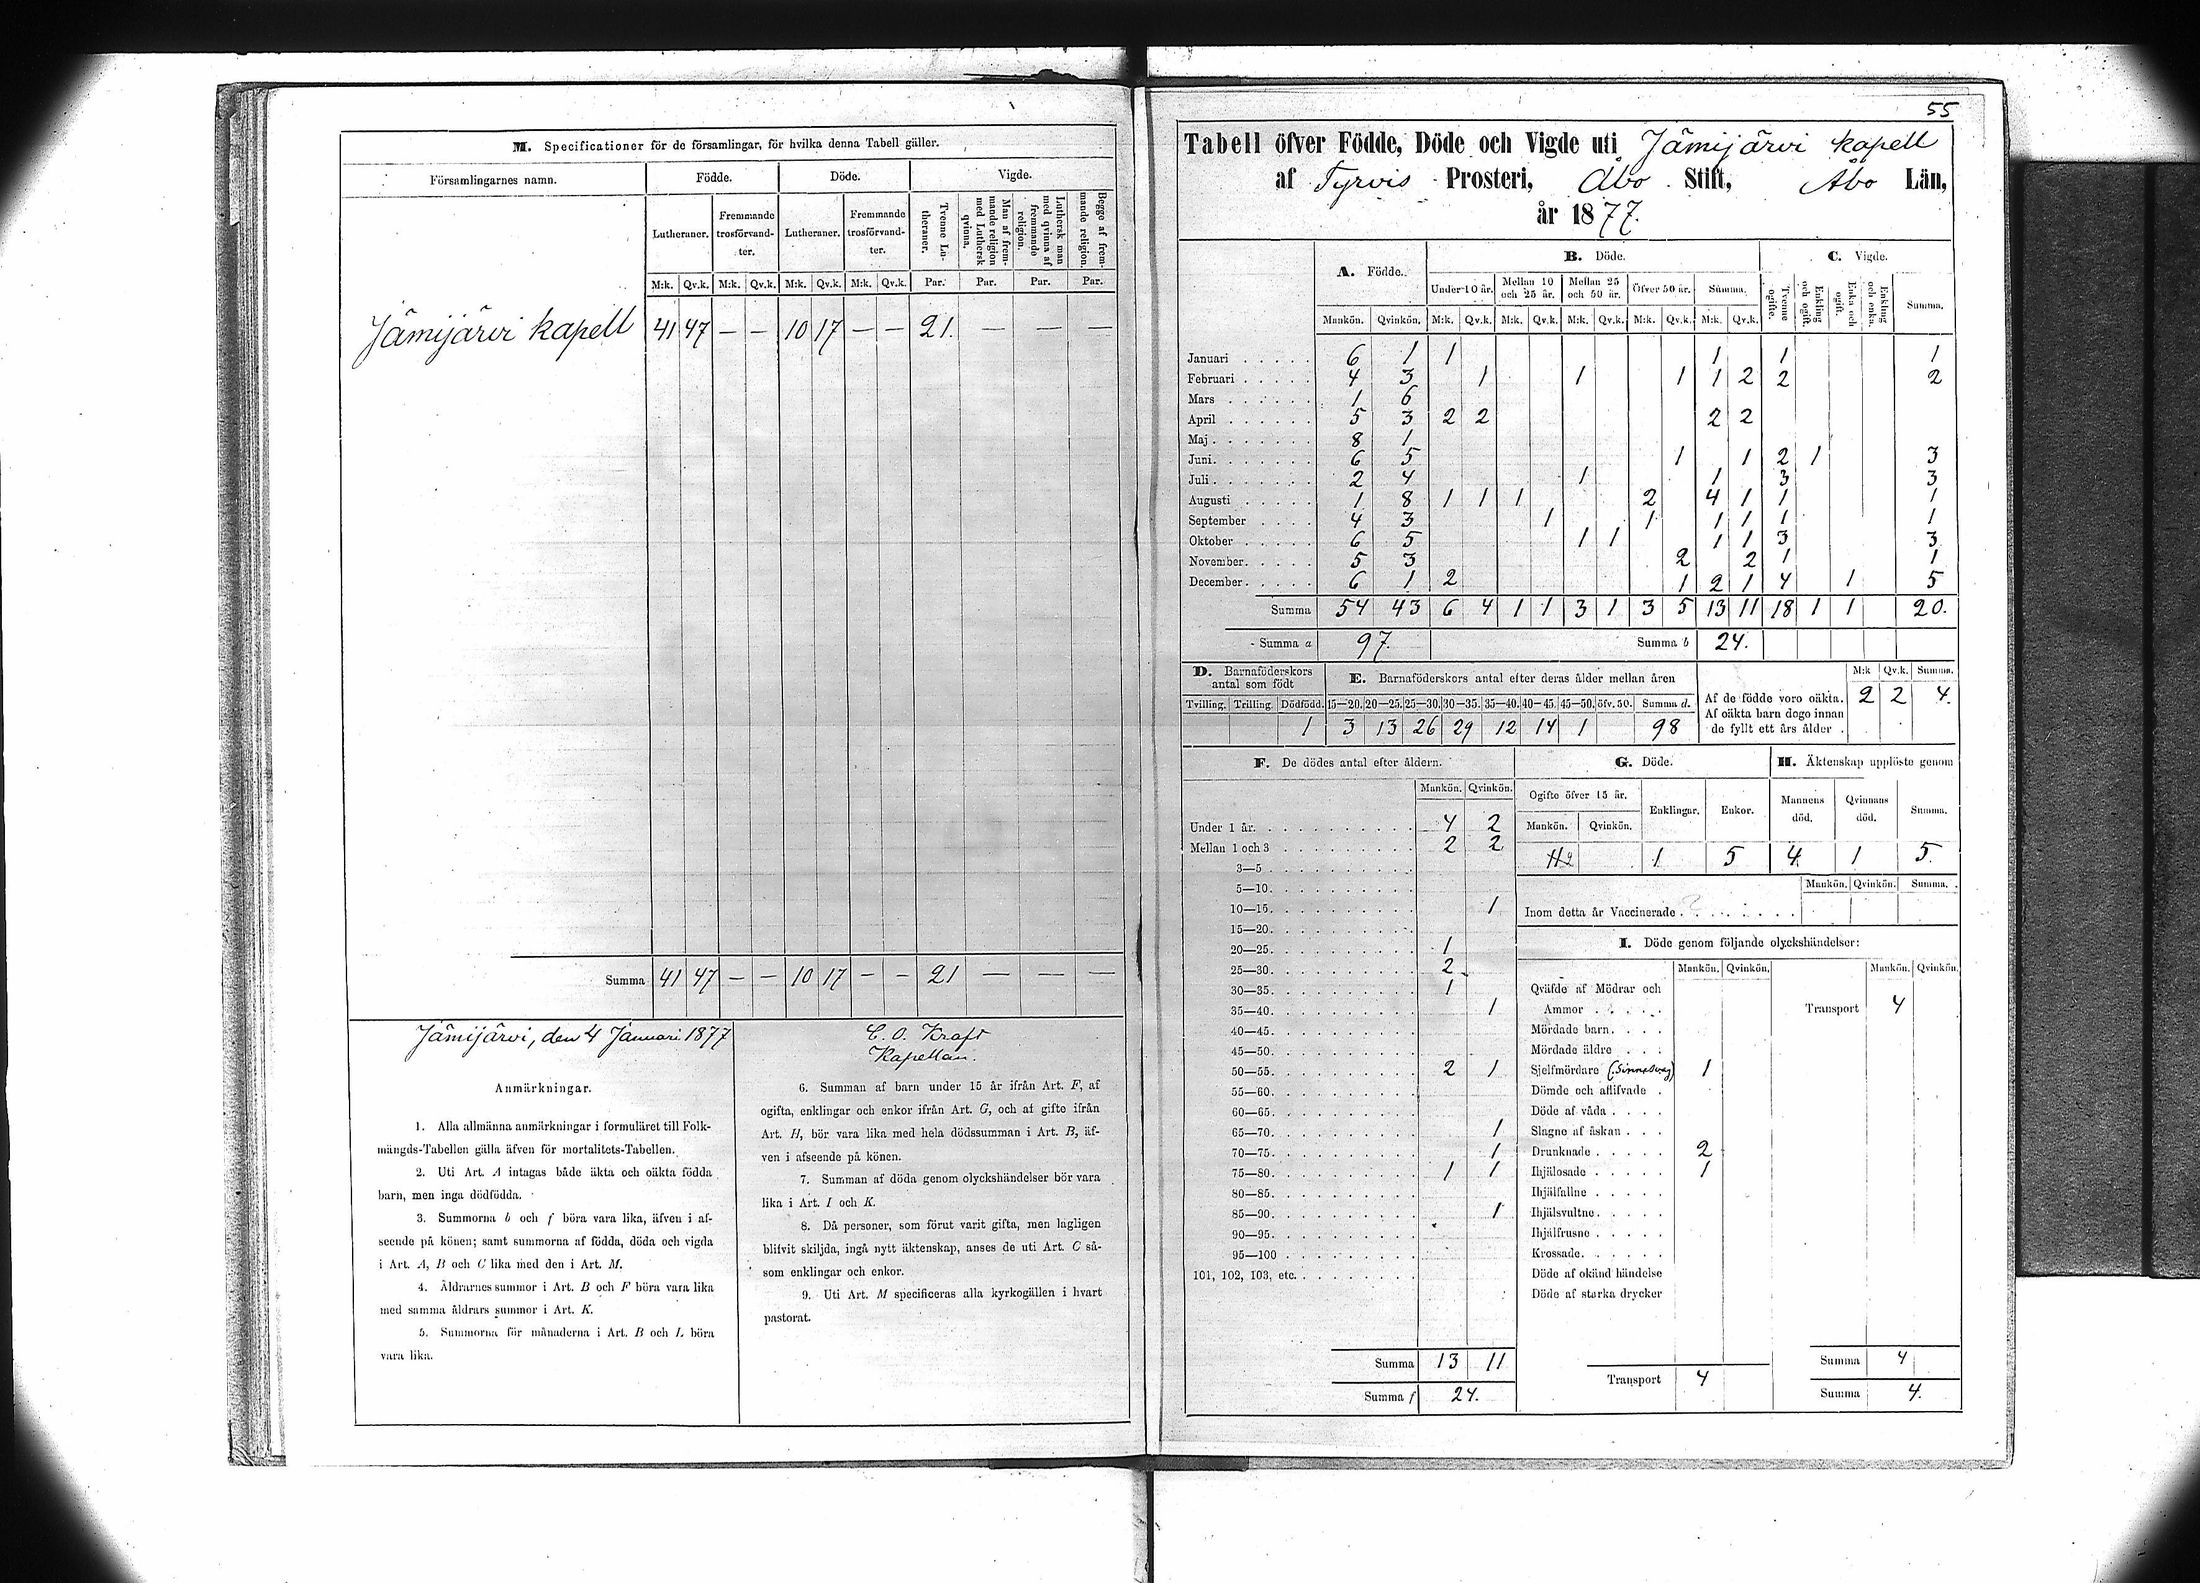 M. Specificationer för de församlingar, för hvilka denna Tabell gäller.
Församlingarnes namn. Födde. Döde. Vigde.
Lutheraner. Fremmande trosförvandter. Lutheraner. Fremmande trosförvandter. Tvenne Lutheraner. Man af fremmande religion med Luthersk qvinna. Luthersk man med qvinna af fremmande religion. Begge af fremmande religion.
M:k. Qv.k. M:k. Qv.k. M:k. Qv.k. M:k. Qv.k. Par. Par. Par. Par.
Jämijärvi kapell 41 47 — — 10 17 — — 21. — — —
Summa 41 47 — — 10 17 — — 21 — — —
Jämijärvi, den 4 Januari 1877
C. O. Kraft
Kapellan.
Anmärkningar.
1. Alla allmänna anmärkningar i formuläret till Folk-
mängds-Tabellen gälla äfven för mortalitets-Tabellen.
2. Uti Art. A intagas både äkta och oäkta födda
barn, men inga dödfödda.
3. Summorna b och f böra vara lika, äfven i af-
seende på könen; samt summorna af födda, döda och vigda
i Art. A, B och C lika med den i Art. M.
4. Åldrarnes summor i Art. B och F böra vara lika
med samma åldrars summor i Art. K.
5. Summorna för månaderna i Art. B och L böra
vara lika.
6. Summan af barn under 15 år ifrån Art. F, af
ogifta, enklingar och enkor ifrån Art. G, och af gifte ifrån
Art. H, bör vara lika med hela dödssumman i Art. B, äf-
ven i afseende på könen.
7. Summan af döda genom olyckshändelser bör vara
lika i Art. I och K.
8. Då personer, som förut varit gifta, men lagligen
blifvit skiljda, ingå nytt äktenskap, anses de uti Art. C så-
som enklingar och enkor.
9. Uti Art. M specificeras alla kyrkogällen i hvart
pastorat.
55
Tabell öfver Födde, Döde och Vigde uti Jämijärvi kapell
af Tyrvis Prosteri, Åbo Stift, Åbo Län,
år 1877.
A. Födde. B. Döde. C. Vigde.
Under 10 år. Mellan 10 och 25 år. Mellan 25 och 50 år. Öfver 50 år. Summa. Tvenne ogifte. Enkling och ogift. Enka och ogift. Enkling och enka. Summa.
Mankön. Qvinkön. M:k. Qv.k. M:k. Qv.k. M:k. Qv.k. M:k. Qv.k. M:k. Qv.k.
Januari 6 1 1 1 1 1
Februari 4 3 1 1 1 1 2 2 2
Mars 1 6
April 5 3 2 2 2 2
Maj 8 1
Juni 6 5 1 1 2 1 3
Juli 2 4 1 1 3 3
Augusti 1 8 1 1 1 2 4 1 1 1
September 4 3 1 1 1 1 1 1
Oktober 6 5 1 1 1 1 3 3
November 5 3 2 2 1 1
December 6 1 2 1 2 1 4 1 5
Summa 54 43 6 4 1 1 3 1 3 5 13 11 18 1 1 20.
Summa a 97. Summa b 24.
D. Barnaföderskors antal som födt
Tvilling. Trilling. Dödfödd.
1
E. Barnaföderskors antal efter deras ålder mellan åren
15—20. 20—25. 25—30. 30—35. 35—40. 40—45. 45—50. öfv. 50. Summa d.
3 13 26 29 12 14 1 98
M:k Qv.k. Summa.
Af de födde voro oäkta. 2 2 4.
Af oäkta barn dogo innan
de fyllt ett års ålder .
F. De dödes antal efter åldern.
Mankön. Qvinkön.
Under 1 år. 4 2
Mellan 1 och 3 2 2
3—5
5—10.
10—15. 1
15—20.
20—25. 1
25—30. 2
30—35. 1
35—40. 1
40—45.
45—50.
50—55. 2 1
55—60.
60—65.
65—70. 1
70—75. 1
75—80. 1 1
80—85.
85—90. 1
90—95.
95—100
101, 102, 103, etc.
Summa 13 11
Summa f 24.
G. Döde.
Ogifte öfver 15 år. Enklingar. Enkor.
Mankön. Qvinkön.
1 5
H. Äktenskap upplöste genom
Mannens död. Qvinnans död. Summa.
4. 1 5.
Mankön. Qvinkön. Summa.
Inom detta år Vaccinerade
I. Döde genom följande olyckshändelser:
Mankön. Qvinkön. Mankön. Qvinkön.
Qväfde af Mödrar och
Ammor
Transport 4
Mördade barn.
Mördade äldre
Sjelfmördare 1
Dömde och aflifvade
Döde af våda
Slagne af åskan
Drunknade 2
Ihjälosade 1
Ihjälfallne
Ihjälsvultne
Ihjälfrusne
Krossade
Döde af okänd händelse
Döde af starka drycker
Transport 4
Summa 4
Summa 4.